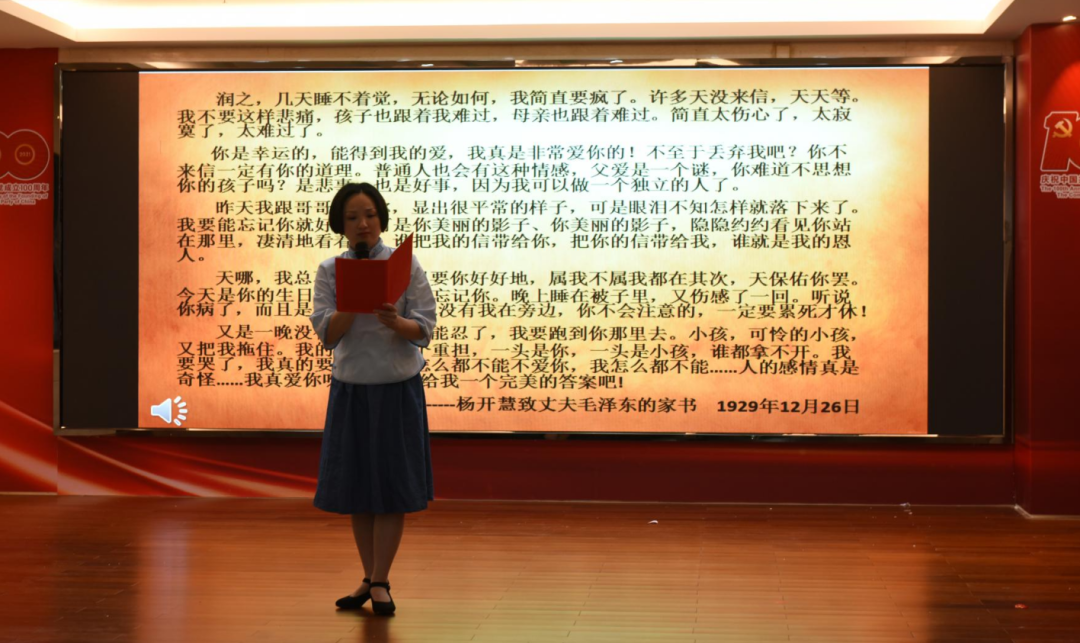 润之，几天睡不着觉，无论如何，我简直要疯了。许多天没来信，天天等。
我不要这样悲痛，孩子也跟着我难过，母亲也跟着难过。简直太伤心了，太寂
寞了，太难过了。
你是幸运的，能得到我的爱，我真是非常爱你的！不至于丢弃我吧？你不
来信一定有你的道理。普通人也会有这种情感，父爱是一个谜，你难道不思想
你的孩子吗？是悲事 也是好事，因为我可以做一个独立的人了。
昨天我跟哥哥 显出很平常的样子，可是眼泪不知怎样就落下来了。
我要能忘记你就好 是你美丽的影子、你美丽的影子，隐隐约约看见你站
在那里，凄清地看着 谁把我的信带给你，把你的信带给我，谁就是我的恩
人。
天哪，我总 要你好好地，属我不属我都在其次，天保佑你罢。
今天是你的生日 忘记你。晚上睡在被子里，又伤感了一回。听说
你病了，而且是 没有我在旁边，你不会注意的，一定要累死才休！
又是一晚没 能忍了，我要跑到你那里去。小孩，可怜的小孩，
又把我拖住。我的 个重担，一头是你，一头是小孩，谁都拿不开。我
要哭了，我真的要 怎么都不能不爱你，我怎么都不能……人的感情真是
奇怪……我真爱你呀 给我一个完美的答案吧!
--杨开慧致丈夫毛泽东的家书 1929年12月26日
成立100周年
庆祝中国